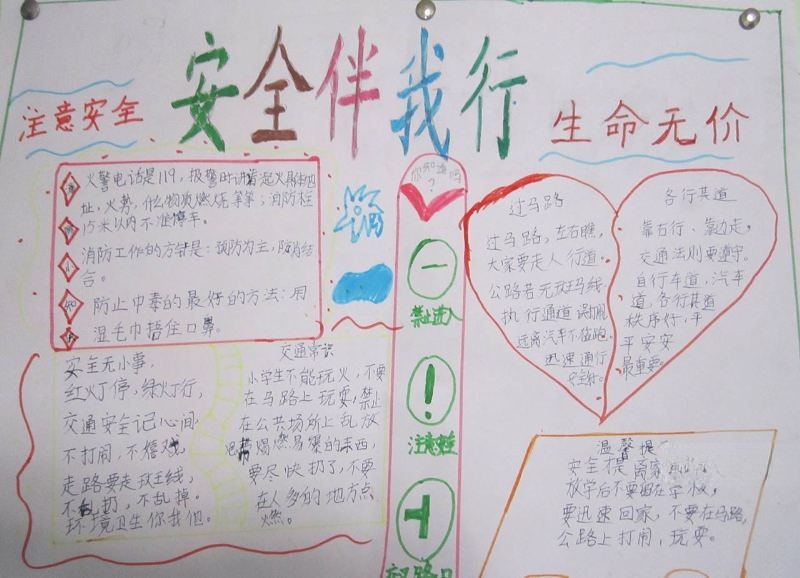 安全伴我行
注意安全
生命无价
火警电话是119，报警时讲清起火具体地
址，火势，什么物质燃烧等等；消防栓
15米以内不准停车。
消防工作的方针是：预防为主，防消结
合。
防止中毒的最好的方法：用
湿毛巾捂住口鼻。
消
小
知
你知道吗
？
禁止进入
注意安全
过马路
过马路，左右瞧，
大家要走人行道。
公路若无斑马线
执行通道
远离汽车不临跑
迅速通行
各行其道
靠右行、靠边走，
交通法则要遵守。
自行车道，汽车
道，各行其道
秩序好，平
平安安
最重要。
安全无小事，
红灯停，绿灯行，
交通安全记心间
不打闹，不嬉戏
走路要走斑马线，
不乱扔，不乱掉。
环境卫生你我他。
交通常识
小学生不能玩火，不要
在马路上玩耍，禁止
在公共场所上乱放
易燃易爆的东西，
要尽快扔了，不要
在人多的地方点
燃。
温馨提
安全才是
放学后不要留在学校，
要迅速回家，不要在马路，
公路上打闹，玩耍。